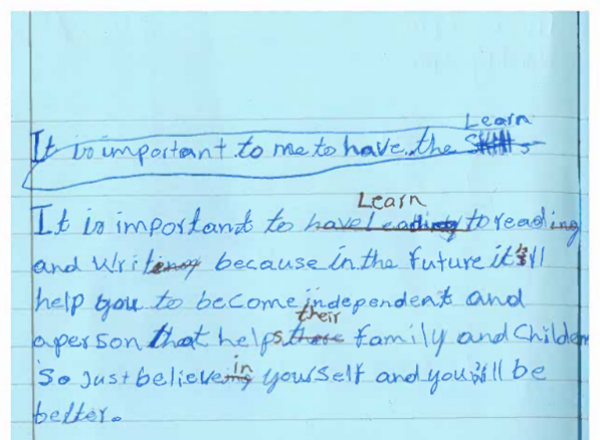 Learn
It is important to me to have the Skills
Learn
It is important to have Leading to reading
and Writing because in the future it'll
help you to become independent and
their
aperson that helps there family and Childen
in
So Just believe yourself and you'll be
better.